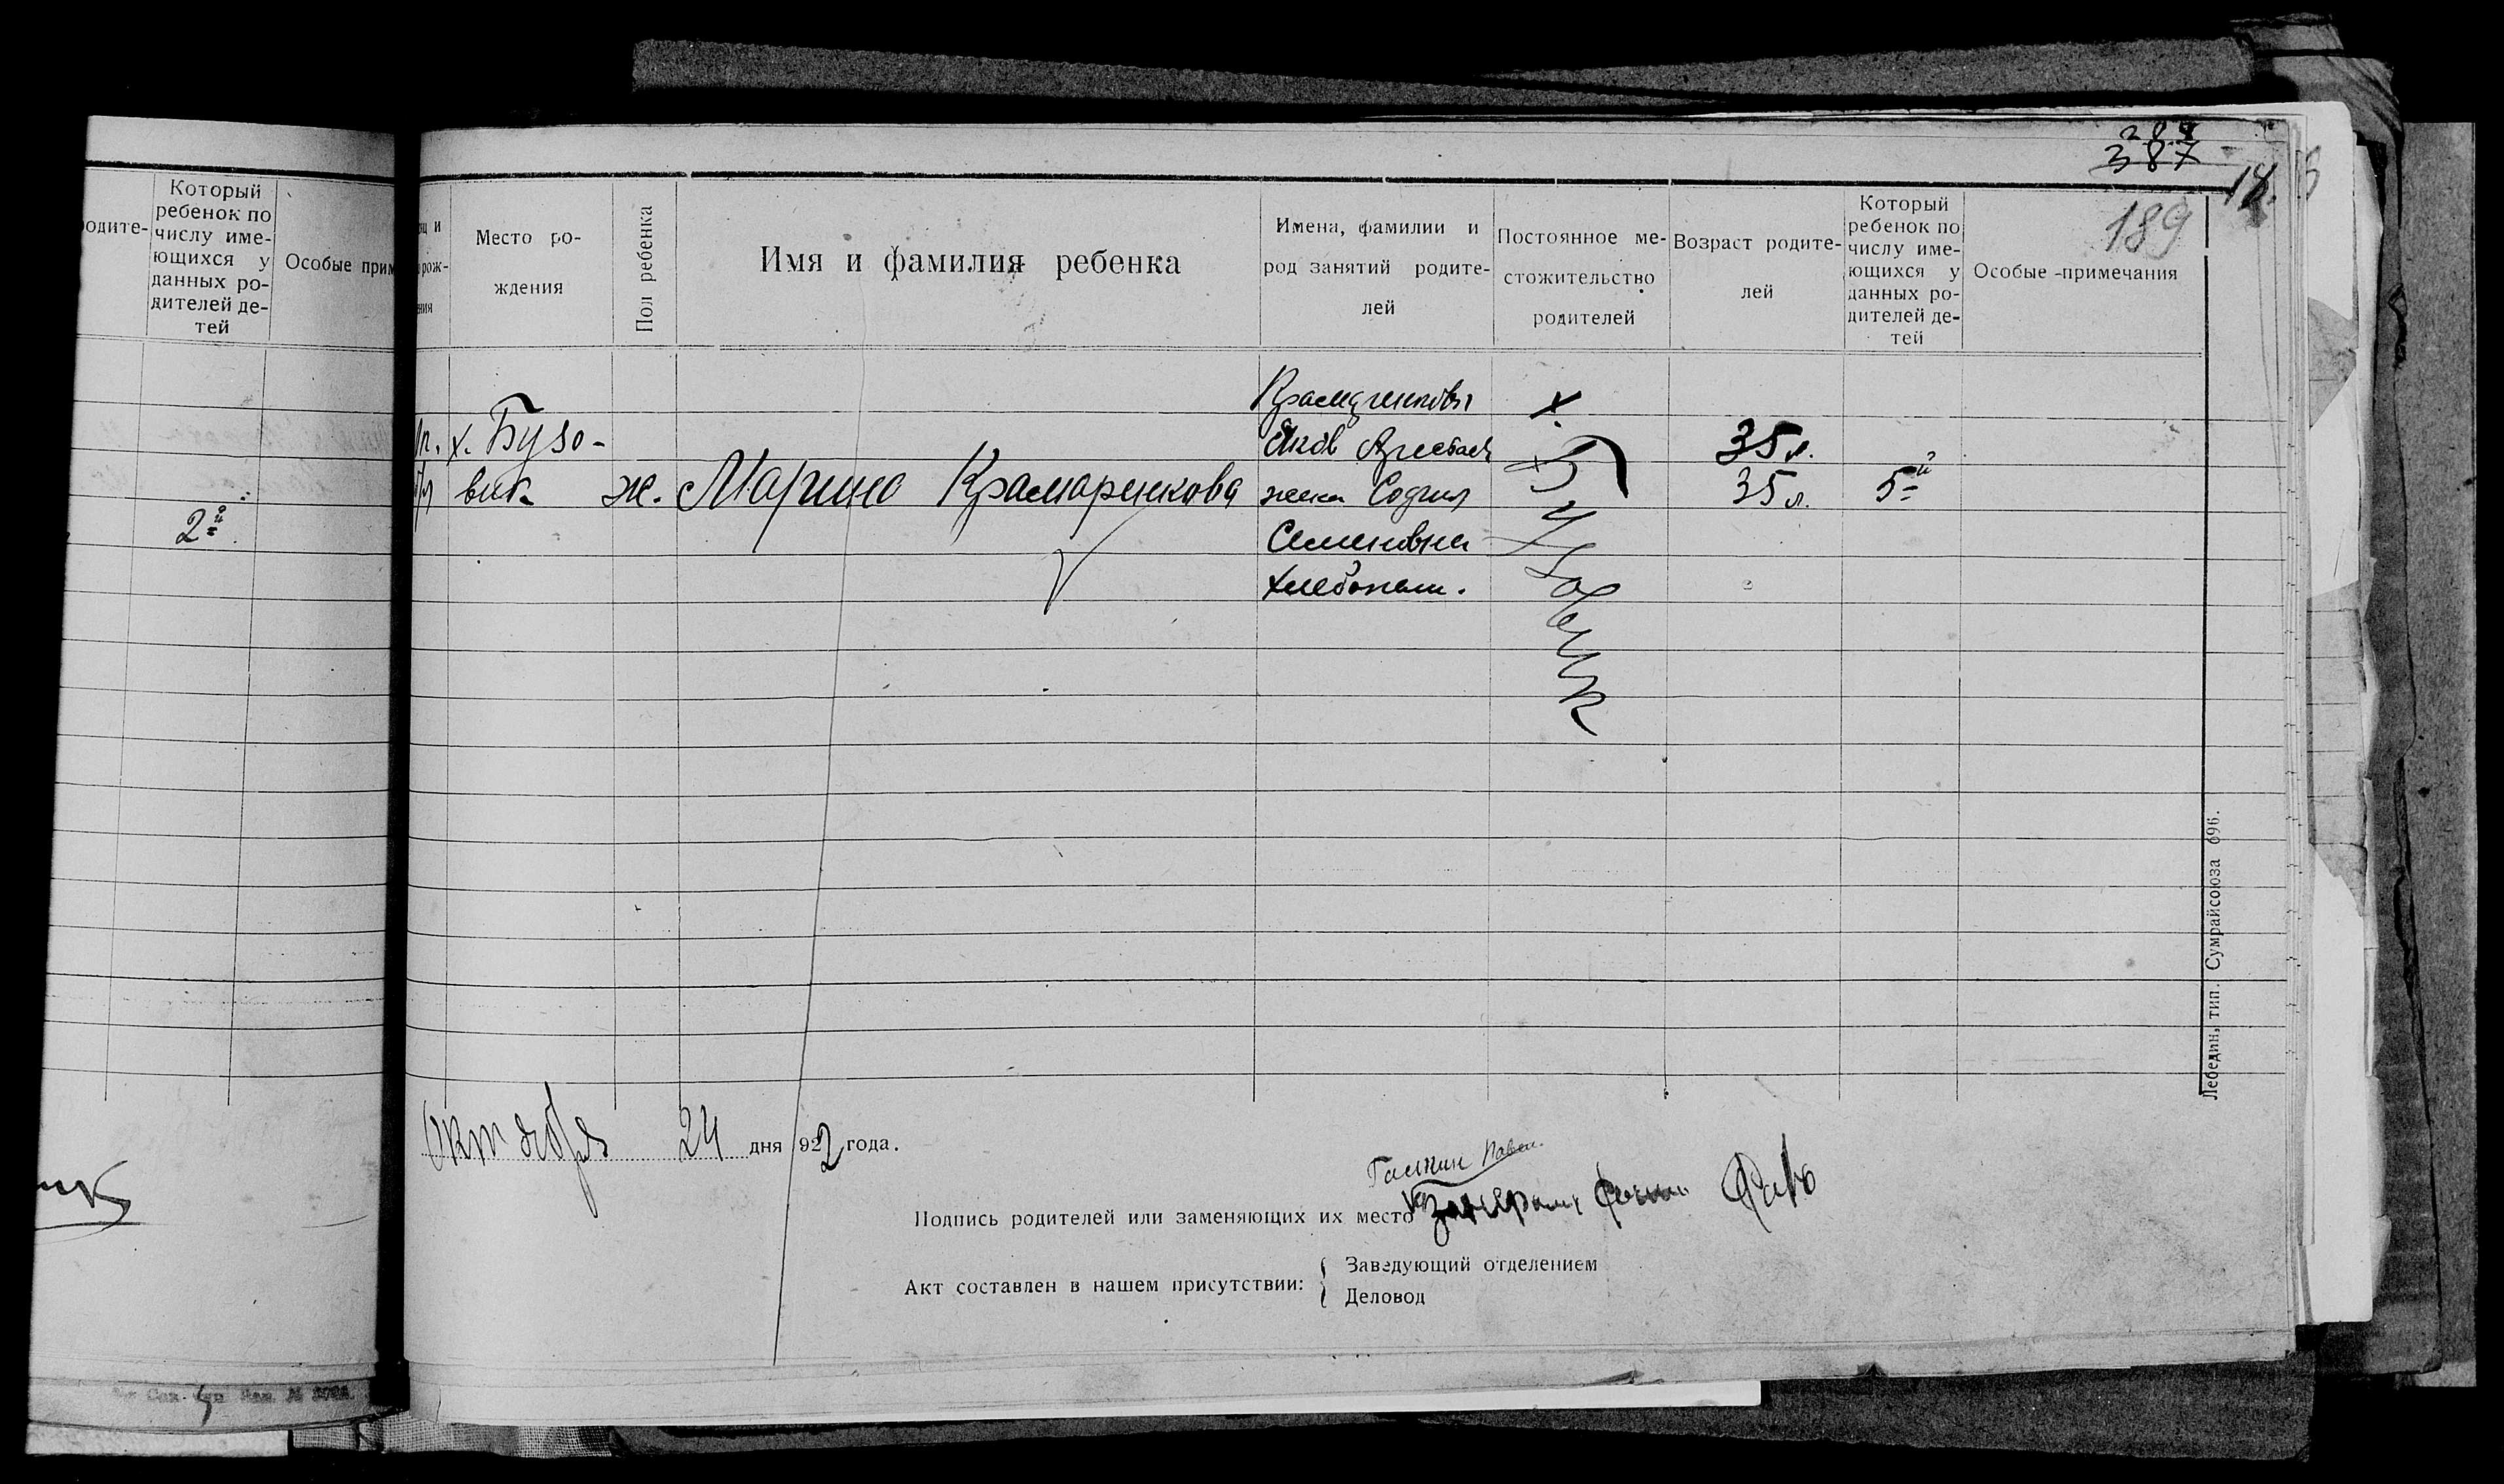 287
387
18.
189
родите-
Который
ребенок по
числу име-
ющихся у
данных ро-
дителей де-
тей
Особые прим
2й
Место ро-
ждения
Пол ребенка
Имя и фамилия ребенка
Имена, фамилии и
род занятий родите-
лей
Постоянное ме-
стожительство
родителей
Возраст родите-
лей
Который
ребенок по
числу име-
ющихся у
данных ро-
дителей де-
тей
Особые примечания
х. Бузо-
вик
ж.
Марина Крамаренкова
Яков
жена София
Семеновна
хлебопаш.
х.
35 л.
35 л.
5й
Октября 24 дня 1922 года.
Галкин Павел
Подпись родителей или заменяющих их место
Акт составлен в нашем присутствии:
Заведующий отделением
Деловод
Лебедин, тип. Сумрайсоюза 696.